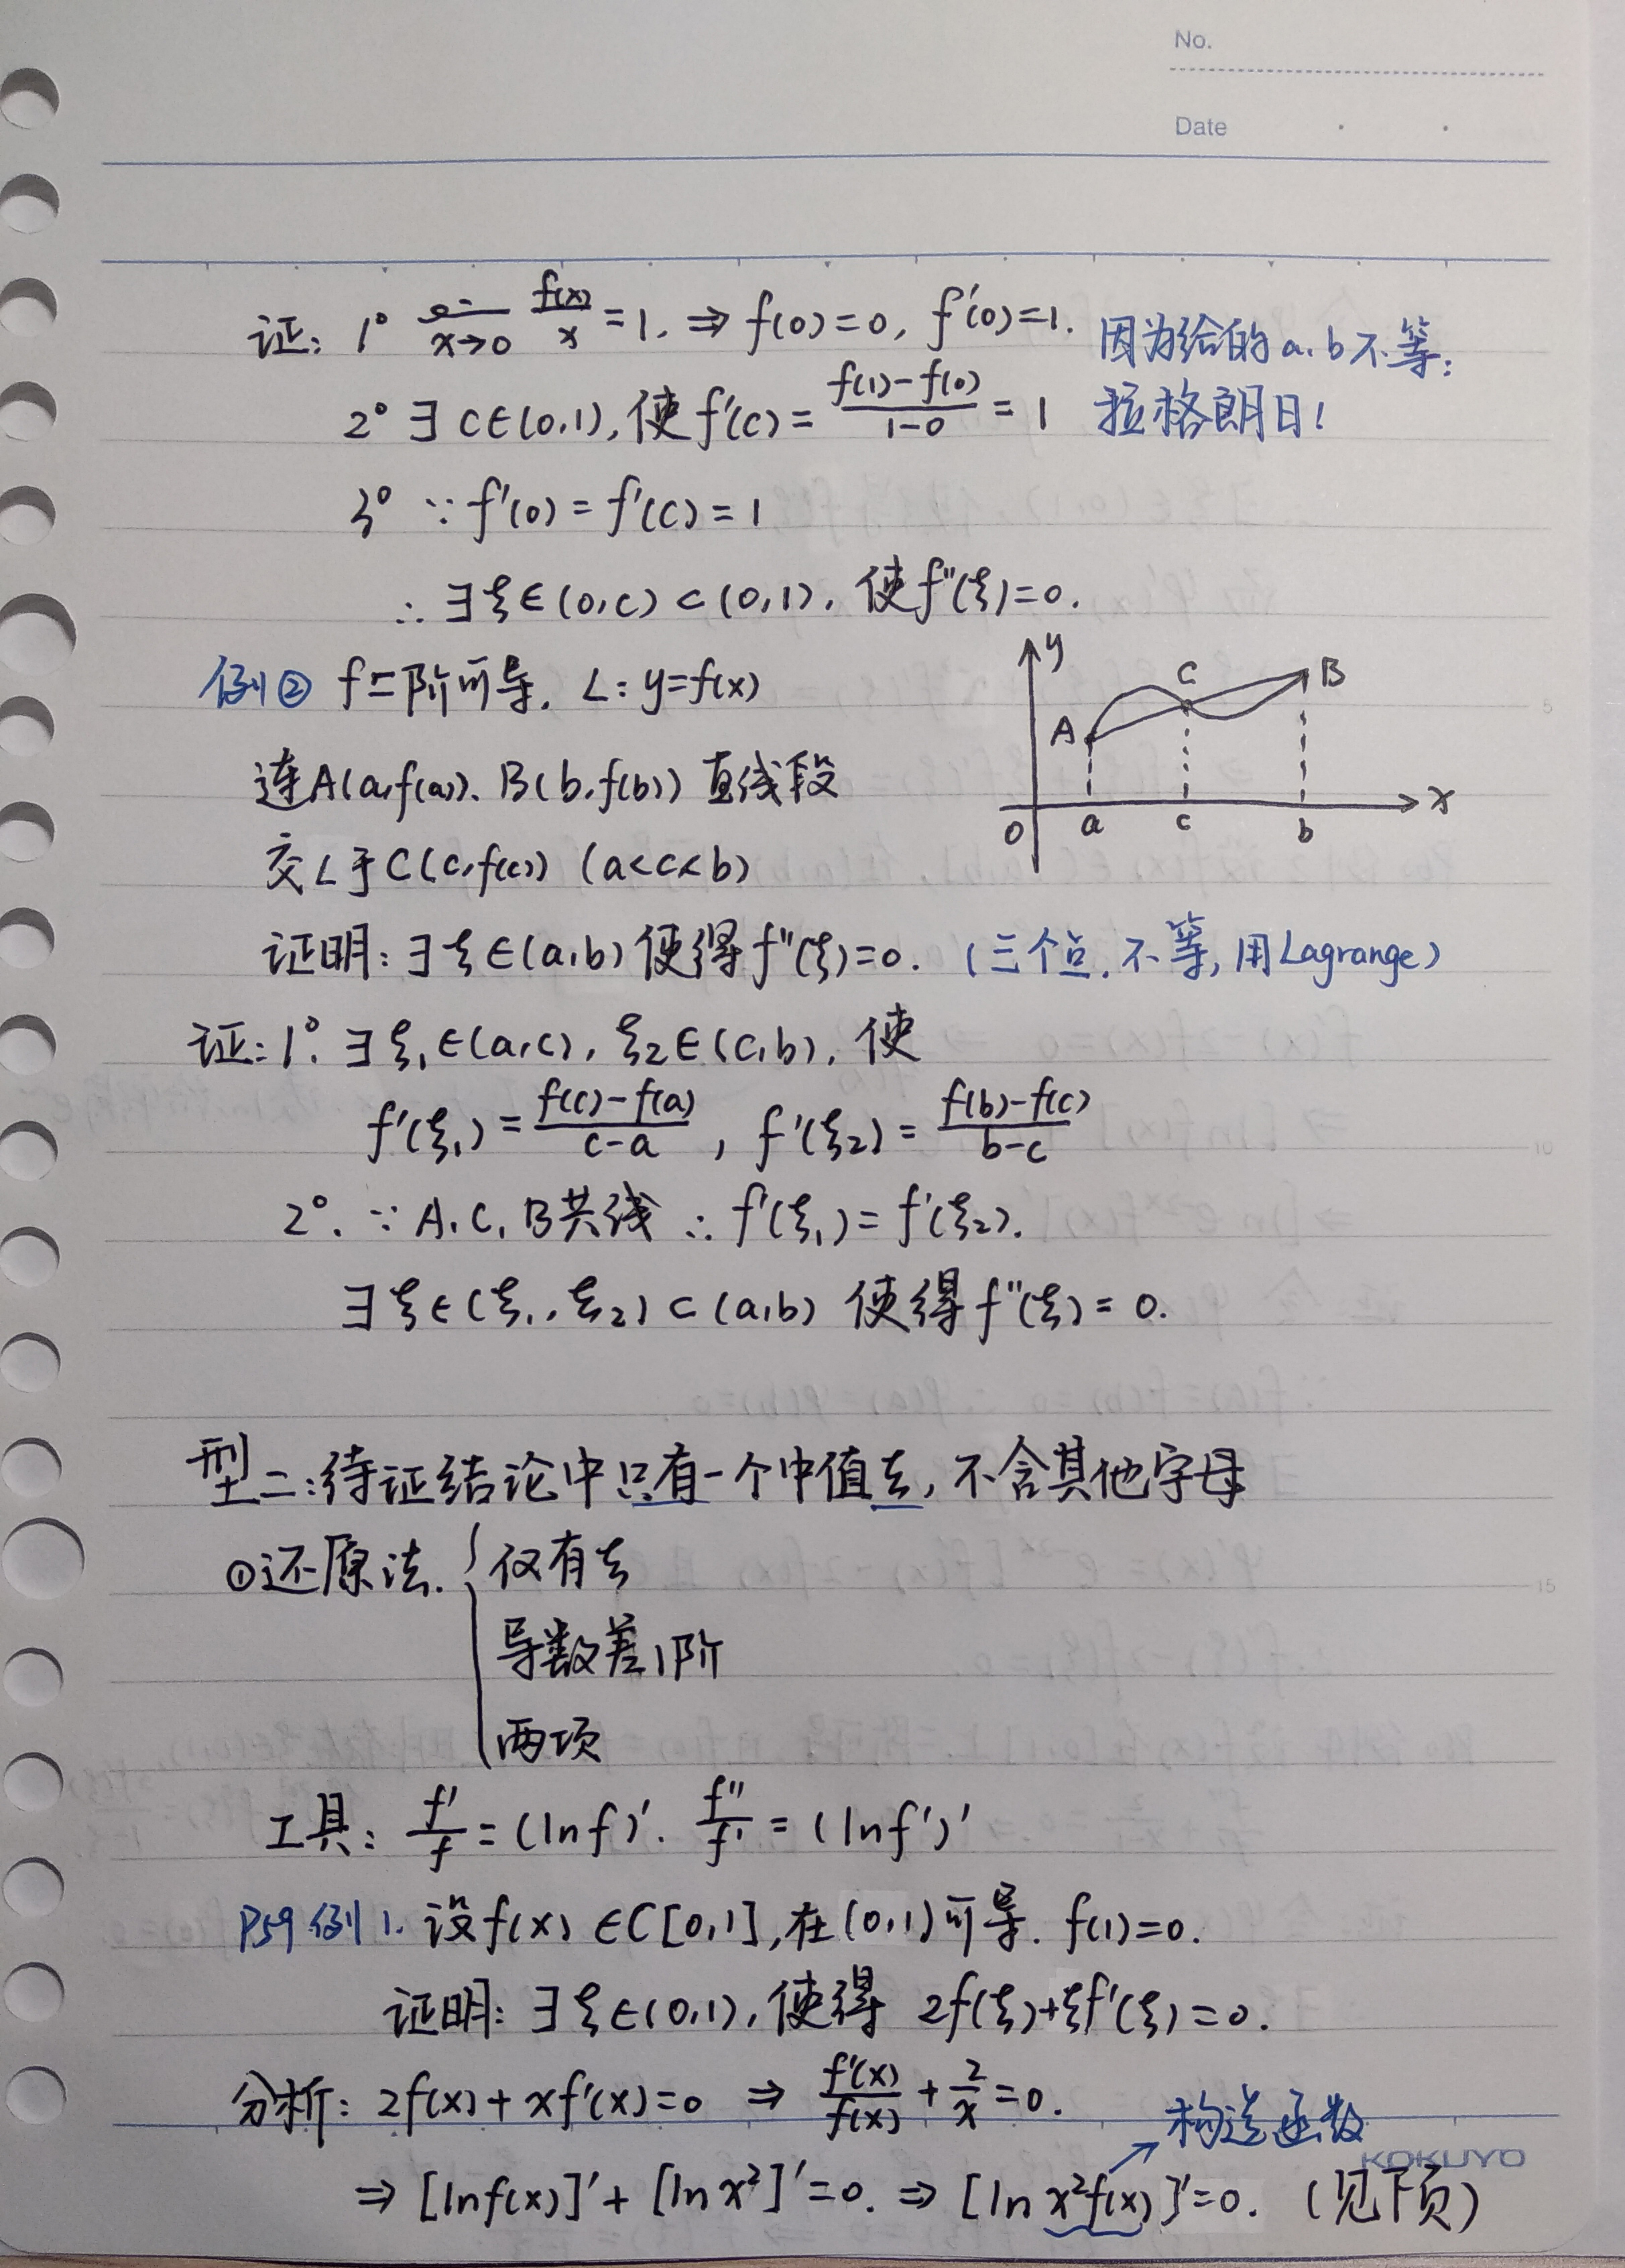 No.
Date
证: 1° lim x→0 f(x)/x = 1. ⇒ f(0)=0, f'(0)=1. 因为给的a.b不等:
2° ∃ C∈(0,1), 使f'(C) = (f(1)-f(0))/(1-0) = 1 拉格朗日!
3° ∵ f'(0) = f'(C) = 1
∴ ∃ξ∈(0,C)⊂(0,1), 使f''(ξ)=0.
例② f二阶可导. L: y=f(x)
连A(a,f(a)). B(b,f(b)) 直线段
交L于C(c,f(c)) (a<c<b)
y
C
B
A
O a c b x
证明: ∃ξ∈(a,b) 使得f''(ξ)=0. (三个点, 不等, 用Lagrange)
证: 1°. ∃ξ₁∈(a,c), ξ₂∈(c,b), 使
f'(ξ₁) = (f(c)-f(a))/(c-a), f'(ξ₂) = (f(b)-f(c))/(b-c)
2°. ∵ A, C, B共线 ∴ f'(ξ₁) = f'(ξ₂).
∃ξ∈(ξ₁, ξ₂)⊂(a,b) 使得f''(ξ) = 0.
型二: 待证结论中只有一个中值ξ, 不含其他字母
①还原法. { 仅有ξ
导数差1阶
两项
工具: f'/f = (ln f)'. f''/f' = (ln f')'
P59例1. 设f(x)∈C[0,1], 在(0,1)可导. f(1)=0.
证明: ∃ξ∈(0,1), 使得 2f(ξ)+ξf'(ξ)=0.
分析: 2f(x)+xf'(x)=0 ⇒ f'(x)/f(x) + 2/x = 0.
构造函数
KOKUYO
⇒ [ln f(x)]' + [ln x²]' = 0. ⇒ [ln x²f(x)]' = 0. (见下页)